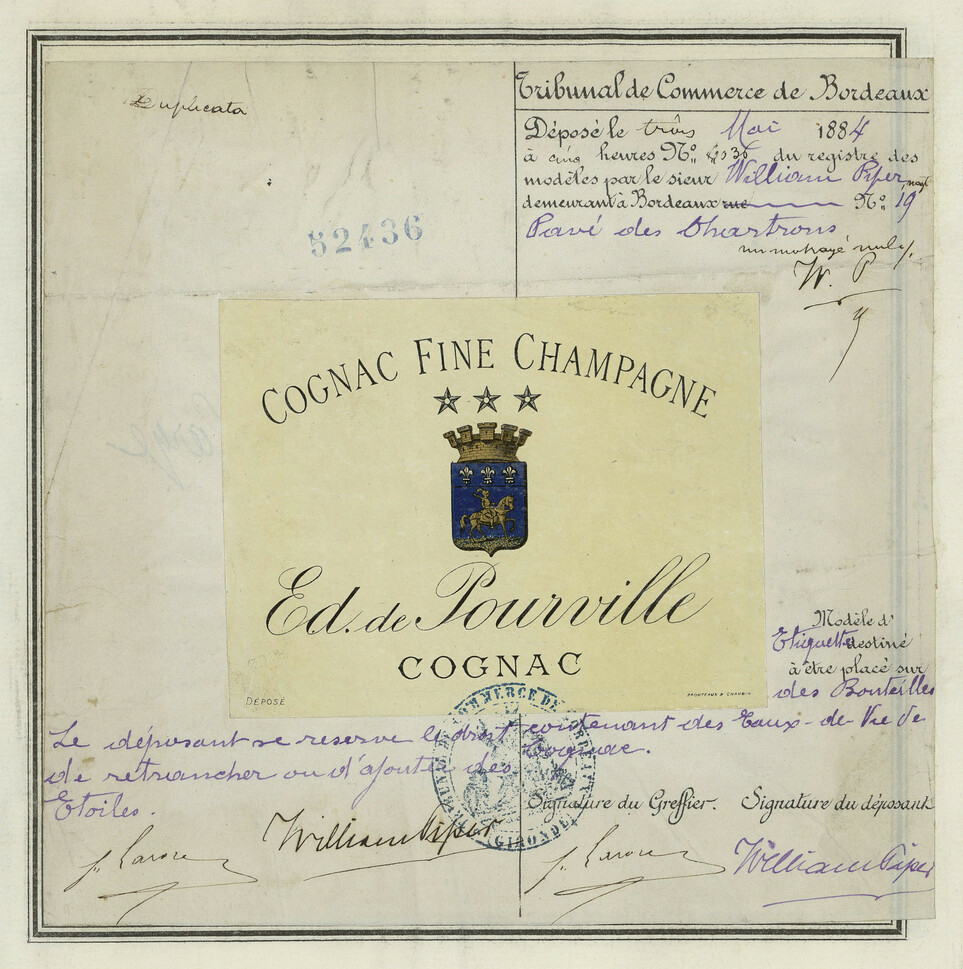 Duplicata
52436
Tribunal de Commerce de Bordeaux
Déposé le trois Mai 1884
à cinq heures N° du registre des
modèles par le sieur William Piper
demeurant à Bordeaux rue N° 19
Pavé des Chartrons
un mot rayé nul
W. P
COGNAC FINE CHAMPAGNE
Ed. de Pourville
COGNAC
DEPOSÉ
Modèle d'
Etiquette destiné
à être placé sur
des Bouteilles
contenant des Eaux-de-Vie de
Cognac.
Le déposant se reserve le droit
de retrancher ou d'ajouter des
Etoiles.
TRIBUNAL DE COMMERCE DE BORDEAUX
(GIRONDE)
Signature du Greffier. Signature du déposant
William Piper
William Piper